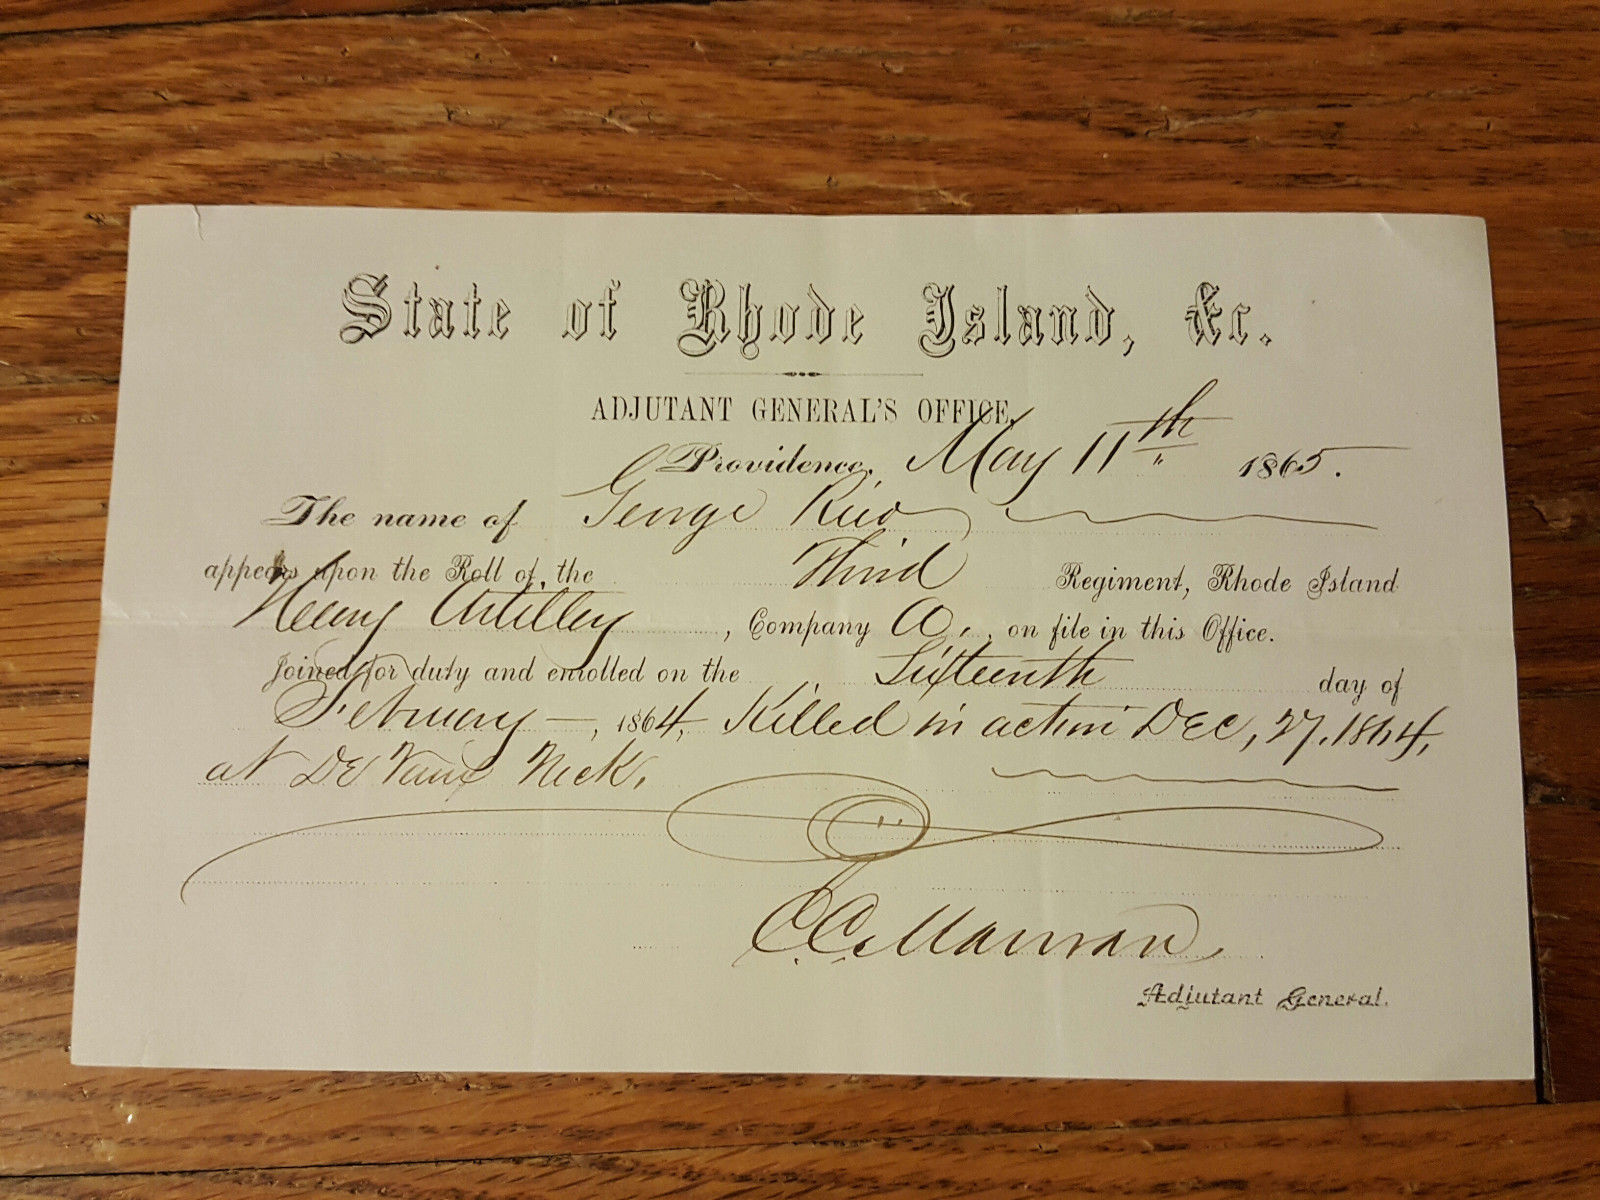 State of Rhode Island, &c.
ADJUTANT GENERAL'S OFFICE,
Providence, May 11th 1865.
The name of George
appears upon the Roll of the Third Regiment, Rhode Island
Heavy Artillery, Company A, on file in this Office.
Joined for duty and enrolled on the Sixteenth day of
February, 1864, Killed in action Dec, 27, 1864,
at Neck.
Adjutant General.